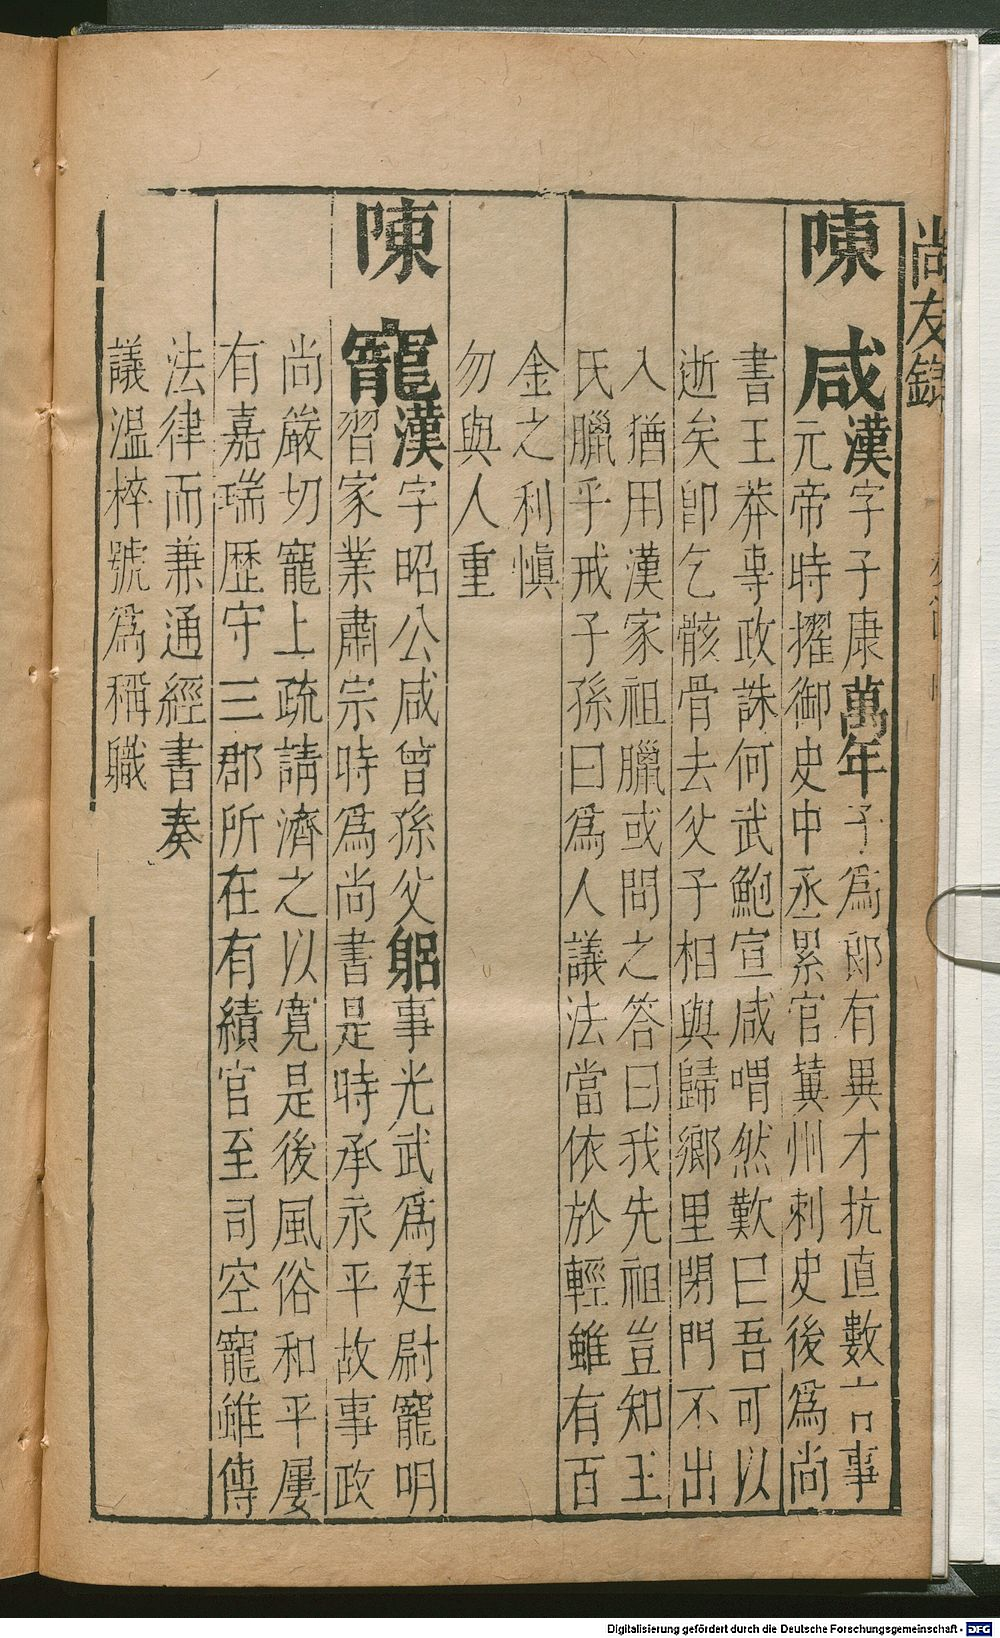 尚友錄
陳咸漢字子康萬年子爲郎有異才抗直數言事
元帝時擢御史中丞累官冀州刺史後爲尚
書王莽專政誅何武鮑宣咸喟然歎曰吾可以
逝矣卽乞骸骨去父子相與歸鄉里閉門不出
入猶用漢家祖臘或問之答曰我先祖豈知王
氏臘乎戒子孫曰爲人議法當依於輕雖有百
金之利慎
勿與人重
陳寵漢字昭公咸曾孫父躬事光武爲廷尉寵明
習家業肅宗時爲尚書是時承永平故事政
尚嚴切寵上疏請濟之以寬是後風俗和平屢
有嘉瑞歷守三郡所在有績官至司空寵雖傳
法律而兼通經書奏
議溫粹號爲稱職
Digitalisierung gefördert durch die Deutsche Forschungsgemeinschaft - DFG